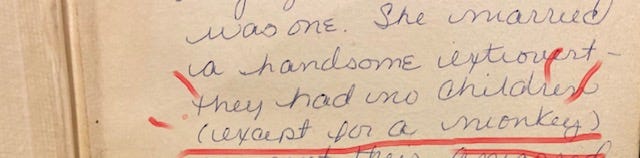 was one. She married
a handsome extrovert -
they had no children
(except for a monkey)
their